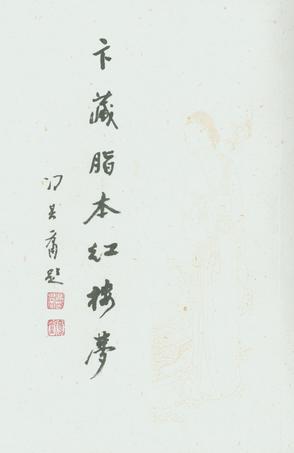 卞藏脂本红楼夢
冯其庸题